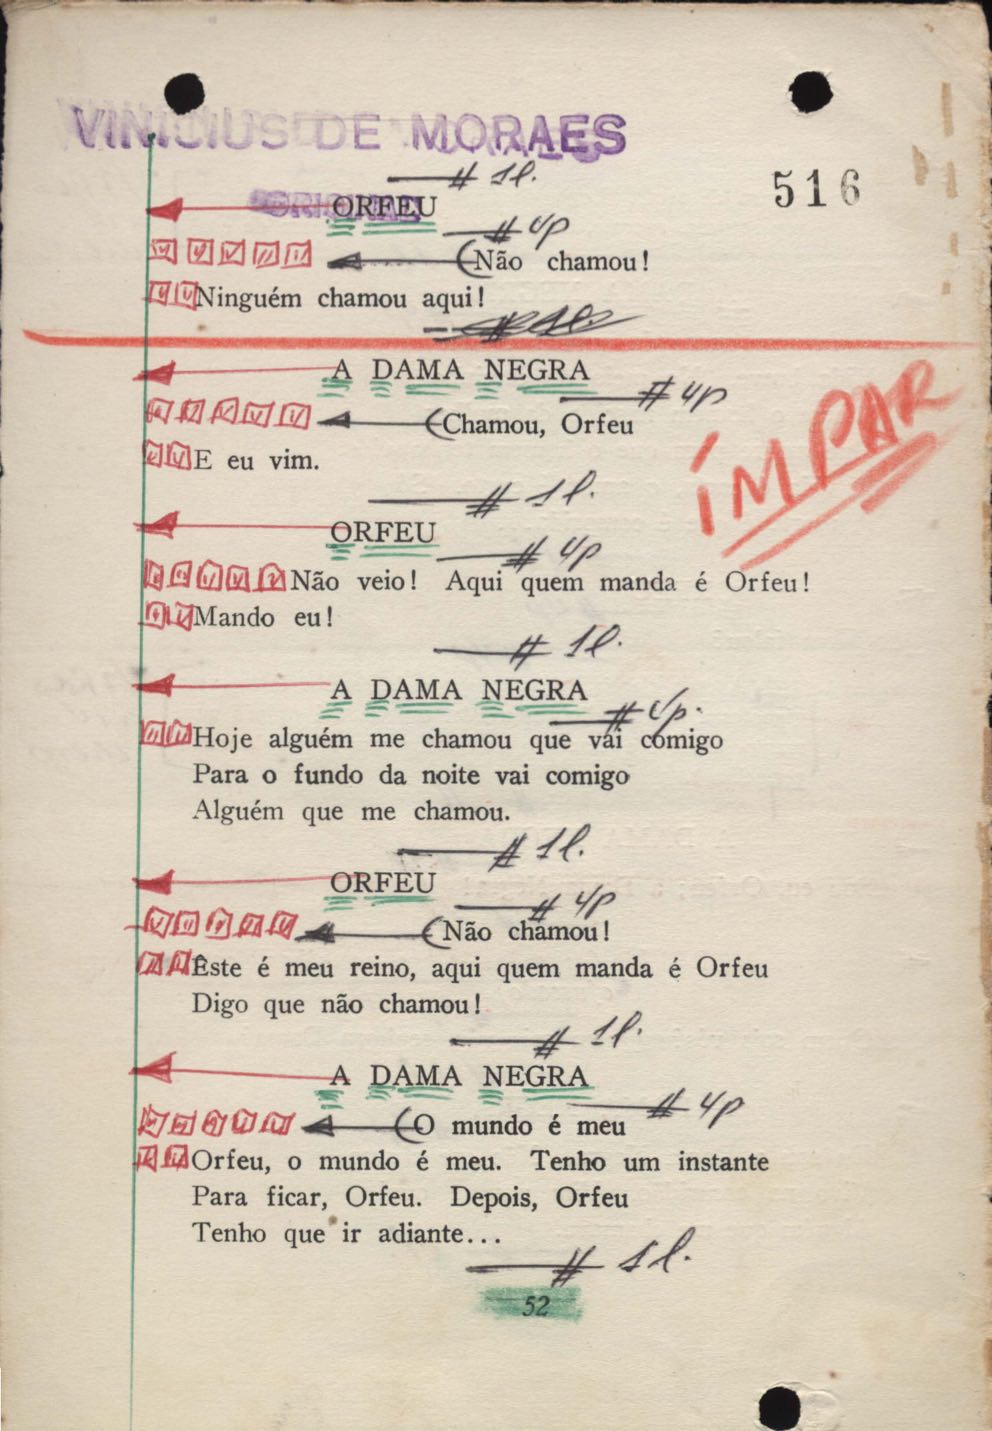 VINICIUS DE MORAES
516
# 1l.
ORIGINAL
ORFEU
# 4p
Não chamou!
Ninguém chamou aqui!
# 1l.
A DAMA NEGRA
# 4p
Chamou, Orfeu
ÍMPAR
E eu vim.
# 1l.
ORFEU
# 4p
Não veio! Aqui quem manda é Orfeu!
Mando eu!
# 1l.
A DAMA NEGRA
# 4p.
Hoje alguém me chamou que vai comigo
Para o fundo da noite vai comigo
Alguém que me chamou.
# 1l.
ORFEU
# 4p
Não chamou!
Êste é meu reino, aqui quem manda é Orfeu
Digo que não chamou!
# 1l.
A DAMA NEGRA
# 4p
O mundo é meu
Orfeu, o mundo é meu. Tenho um instante
Para ficar, Orfeu. Depois, Orfeu
Tenho que ir adiante...
# 1l.
52